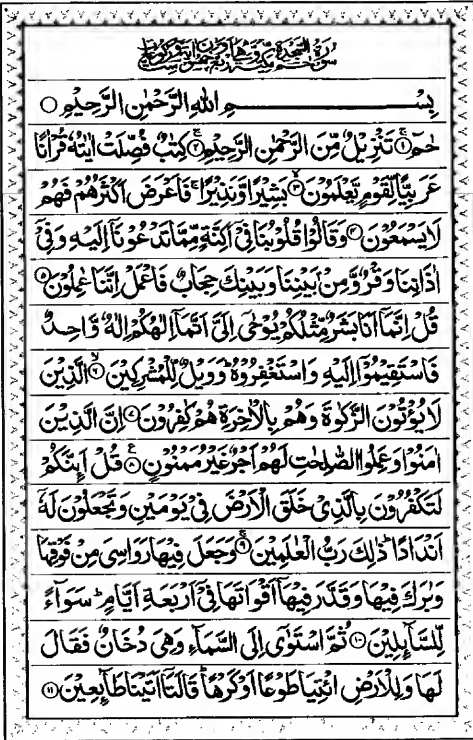 بِسْمِ اللهِ الرَّحْمٰنِ الرَّحِيْمِ ○
حٰمٓ ۝١ تَنْزِيْلٌ مِّنَ الرَّحْمٰنِ الرَّحِيْمِ ۝٢ كِتٰبٌ فُصِّلَتْ اٰيٰتُهٗ قُرْاٰنًا
عَرَبِيًّا لِّقَوْمٍ يَّعْلَمُوْنَ ۝٣ بَشِيْرًا وَّنَذِيْرًا ۚ فَاَعْرَضَ اَكْثَرُهُمْ فَهُمْ
لَا يَسْمَعُوْنَ ۝٤ وَقَالُوْا قُلُوْبُنَا فِيْٓ اَكِنَّةٍ مِّمَّا تَدْعُوْنَآ اِلَيْهِ وَفِيْٓ
اٰذَانِنَا وَقْرٌ وَّمِنْۢ بَيْنِنَا وَبَيْنِكَ حِجَابٌ فَاعْمَلْ اِنَّنَا عٰمِلُوْنَ ۝٥
قُلْ اِنَّمَآ اَنَا بَشَرٌ مِّثْلُكُمْ يُوْحٰٓى اِلَيَّ اَنَّمَآ اِلٰهُكُمْ اِلٰهٌ وَّاحِدٌ
فَاسْتَقِيْمُوْٓا اِلَيْهِ وَاسْتَغْفِرُوْهُ ۗ وَوَيْلٌ لِّلْمُشْرِكِيْنَ ۝٦ الَّذِيْنَ
لَا يُؤْتُوْنَ الزَّكٰوةَ وَهُمْ بِالْاٰخِرَةِ هُمْ كٰفِرُوْنَ ۝٧ اِنَّ الَّذِيْنَ
اٰمَنُوْا وَعَمِلُوا الصّٰلِحٰتِ لَهُمْ اَجْرٌ غَيْرُ مَمْنُوْنٍ ۝٨ قُلْ اَئِنَّكُمْ
لَتَكْفُرُوْنَ بِالَّذِيْ خَلَقَ الْاَرْضَ فِيْ يَوْمَيْنِ وَتَجْعَلُوْنَ لَهٗٓ
اَنْدَادًا ۗ ذٰلِكَ رَبُّ الْعٰلَمِيْنَ ۝٩ وَجَعَلَ فِيْهَا رَوَاسِيَ مِنْ فَوْقِهَا
وَبٰرَكَ فِيْهَا وَقَدَّرَ فِيْهَآ اَقْوَاتَهَا فِيْٓ اَرْبَعَةِ اَيَّامٍ ۗ سَوَآءً
لِّلسَّآئِلِيْنَ ۝١٠ ثُمَّ اسْتَوٰٓى اِلَى السَّمَآءِ وَهِيَ دُخَانٌ فَقَالَ
لَهَا وَلِلْاَرْضِ ائْتِيَا طَوْعًا اَوْ كَرْهًا ۗ قَالَتَآ اَتَيْنَا طَآئِعِيْنَ ۝١١